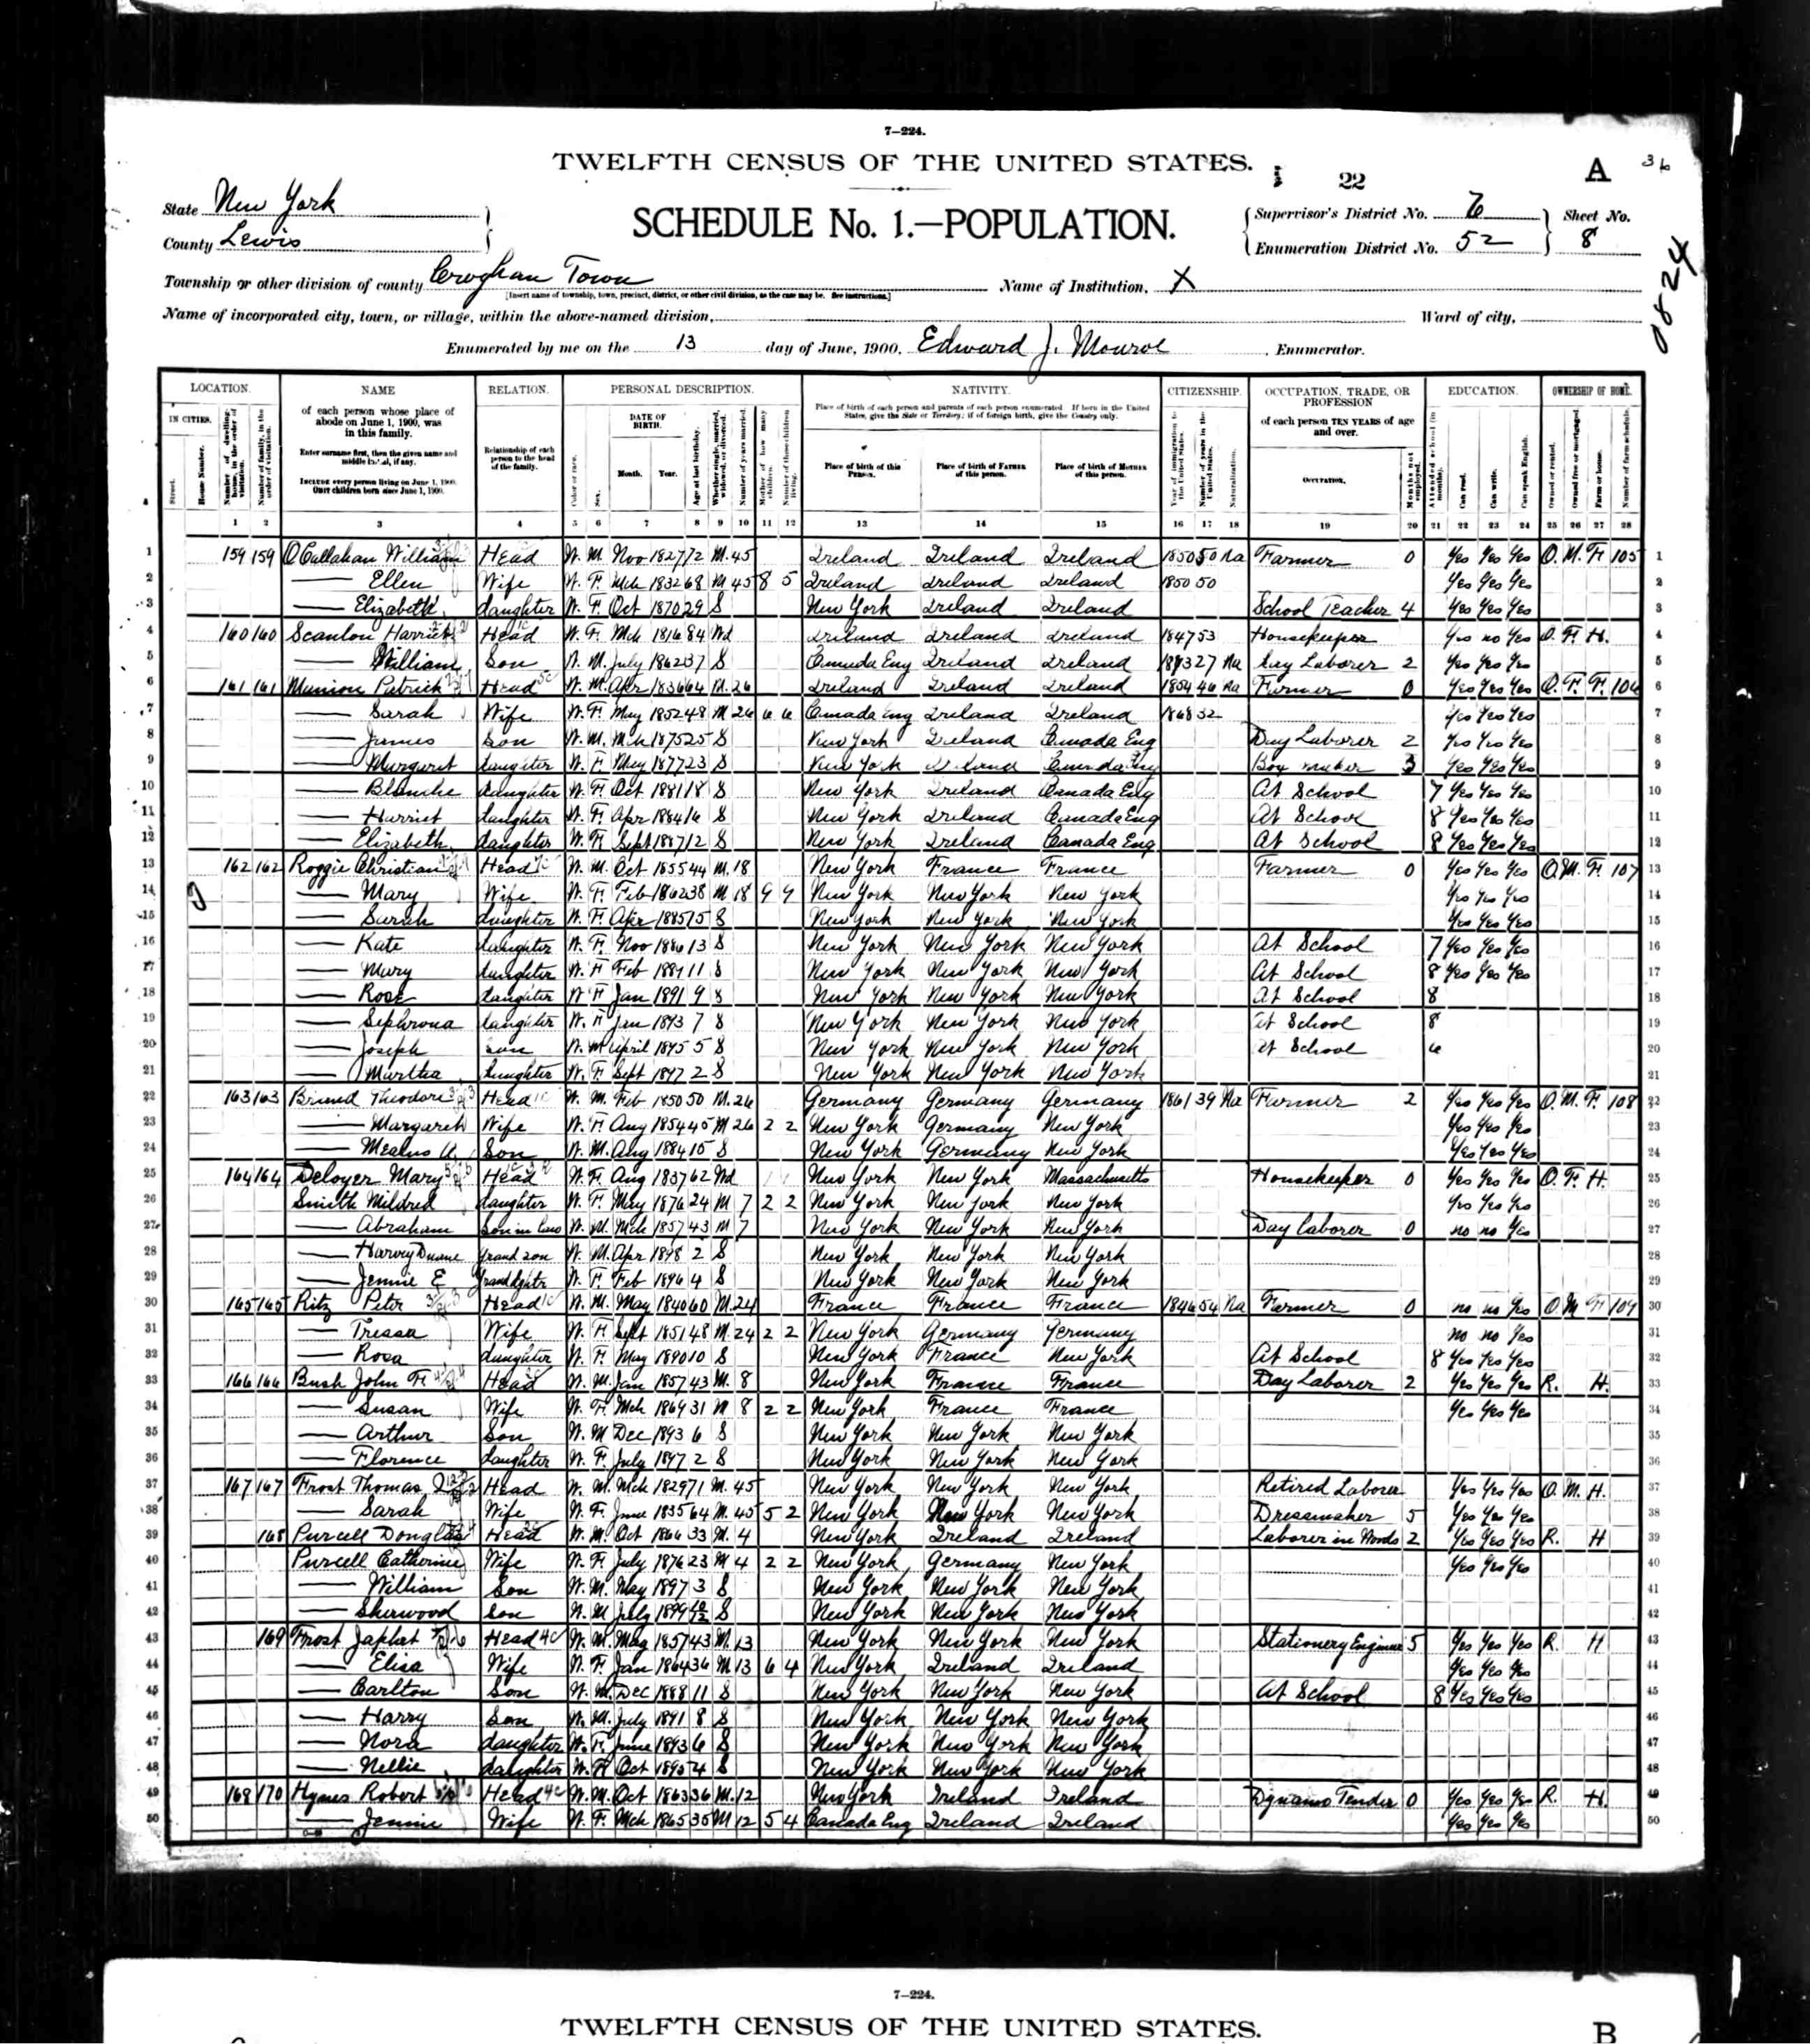 7—224.
TWELFTH CENSUS OF THE UNITED STATES.
22
A
36
State New York
SCHEDULE No. 1.—POPULATION.
Supervisor's District No. 6
Sheet No.
County Lewis
Enumeration District No. 52
8
0824
Township or other division of county Croghan Town
Name of Institution, X
[Insert name of township, town, precinct, district, or other civil division, as the case may be. See instructions.]
Name of incorporated city, town, or village, within the above-named division,
Ward of city,
Enumerated by me on the 13 day of June, 1900, Edward J. Monroe, Enumerator.
LOCATION. NAME RELATION. PERSONAL DESCRIPTION. NATIVITY. CITIZENSHIP. OCCUPATION, TRADE, OR PROFESSION EDUCATION. OWNERSHIP OF HOME.
IN CITIES.
Street.
House Number.
Number of dwelling-house, in the order of visitation.
Number of family, in the order of visitation.
of each person whose place of abode on June 1, 1900, was in this family.
Enter surname first, then the given name and middle initial, if any.
INCLUDE every person living on June 1, 1900. OMIT children born since June 1, 1900.
Relationship of each person to the head of the family.
Color or race.
Sex.
DATE OF BIRTH.
Month. Year.
Age at last birthday.
Whether single, married, widowed, or divorced.
Number of years married.
Mother of how many children.
Number of these children living.
Place of birth of each person and parents of each person enumerated. If born in the United States, give the State or Territory; if of foreign birth, give the Country only.
Place of birth of this PERSON.
Place of birth of FATHER of this person.
Place of birth of MOTHER of this person.
Year of immigration to the United States.
Number of years in the United States.
Naturalization.
of each person TEN YEARS of age and over.
OCCUPATION.
Months not employed.
Attended school (in months).
Can read.
Can write.
Can speak English.
Owned or rented.
Owned free or mortgaged.
Farm or house.
Number of farm schedule.
1 2 3 4 5 6 7 8 9 10 11 12 13 14 15 16 17 18 19 20 21 22 23 24 25 26 27 28
1 159 159 O'Callahan William Head W. M. Nov 1827 72 M. 45 Ireland Ireland Ireland 1850 50 Na Farmer 0 Yes Yes Yes O. M. F. 105 1
2 — Ellen Wife W. F. Mch 1832 68 M 45 8 5 Ireland Ireland Ireland 1850 50 Yes Yes Yes 2
3 — Elizabeth daughter W. F. Oct 1870 29 S New York Ireland Ireland School Teacher 4 Yes Yes Yes 3
4 160 160 Scanlon Harriet Head W. F. Mch 1816 84 Wd Ireland Ireland Ireland 1847 53 Housekeeper Yes no Yes O. F. H. 4
5 — William Son W. M. July 1862 37 S Canada Eng Ireland Ireland 1873 27 Na Day Laborer 2 Yes Yes Yes 5
6 161 161 Munion Patrick Head W. M. Apr 1836 64 M. 26 Ireland Ireland Ireland 1854 46 Na Farmer 0 Yes Yes Yes O. F. F. 106 6
7 — Sarah Wife W. F. May 1852 48 M 26 6 6 Canada Eng Ireland Ireland 1868 32 Yes Yes Yes 7
8 — James Son W. M. Mch 1875 25 S New York Ireland Canada Eng Day Laborer 2 Yes Yes Yes 8
9 — Margaret daughter W. F. May 1877 23 S New York Ireland Canada Eng Box maker 3 Yes Yes Yes 9
10 — Blanche daughter W. F. Oct 1881 18 S New York Ireland Canada Eng At School 7 Yes Yes Yes 10
11 — Harriet daughter W. F. Apr 1884 16 S New York Ireland Canada Eng At School 8 Yes Yes Yes 11
12 — Elizabeth daughter W. F. Sept 1887 12 S New York Ireland Canada Eng At School 8 Yes Yes Yes 12
13 162 162 Roggie Christian Head W. M. Oct 1855 44 M. 18 New York France France Farmer 0 Yes Yes Yes O. M. F. 107 13
14 — Mary Wife W. F. Feb 1862 38 M 18 9 9 New York New York New York Yes Yes Yes 14
15 — Sarah daughter W. F. Apr 1885 15 S New York New York New York Yes Yes Yes 15
16 — Kate daughter W. F. Nov 1886 13 S New York New York New York At School 7 Yes Yes Yes 16
17 — Mary daughter W. F. Feb 1889 11 S New York New York New York At School 8 Yes Yes Yes 17
18 — Rose daughter W. F. Jan 1891 9 S New York New York New York At School 8 18
19 — Sephrona daughter W. F. Jan 1893 7 S New York New York New York At School 8 19
20 — Joseph son W. M. April 1895 5 S New York New York New York At School 6 20
21 — Martha daughter W. F. Sept 1897 2 S New York New York New York 21
22 163 163 Theodore Head W. M. Feb 1850 50 M. 26 Germany Germany Germany 1861 39 Na Farmer 2 Yes Yes Yes O. M. F. 108 22
23 — Margaret Wife W. F. Aug 1854 45 M 26 2 2 New York Germany New York Yes Yes Yes 23
24 — Son W. M. Aug 1884 15 S New York Germany New York Yes Yes Yes 24
25 164 164 Deloyer Mary Head W. F. Aug 1837 62 Wd New York New York Massachusetts Housekeeper 0 Yes Yes Yes O. F. H. 25
26 Smith Mildred daughter W. F. May 1876 24 M 7 2 2 New York New York New York Yes Yes Yes 26
27 — Abraham Son in law W. M. Mch 1857 43 M 7 New York New York New York Day laborer 0 no no Yes 27
28 — Harvey Duane grand son W. M. Apr 1898 2 S New York New York New York 28
29 — Jennie E grand dghtr W. F. Feb 1896 4 S New York New York New York 29
30 165 165 Ritz Peter Head W. M. May 1840 60 M. 24 France France France 1846 54 Na Farmer 0 no no Yes O. M F 109 30
31 — Tressa Wife W. F. Sept 1851 48 M. 24 2 2 New York Germany Germany no no Yes 31
32 — Rosa daughter W. F. May 1890 10 S New York France New York At School 8 Yes Yes Yes 32
33 166 166 Bush John F. Head W. M. Jan 1857 43 M. 8 New York France France Day Laborer 2 Yes Yes Yes R. H. 33
34 — Susan Wife W. F. Mch 1869 31 M 8 2 2 New York France France Yes Yes Yes 34
35 — Arthur Son W. M Dec 1893 6 S New York New York New York 35
36 — Florence daughter W. F. July 1897 2 S New York New York New York 36
37 167 167 Frost Thomas Head W. M. Mch 1829 71 M. 45 New York New York New York Retired Laborer Yes Yes Yes O. M. H. 37
38 — Sarah Wife W. F. June 1835 64 M. 45 5 2 New York New York New York Dressmaker 5 Yes Yes Yes 38
39 168 Purcell Douglas Head W. M. Oct 1866 33 M. 4 New York Ireland Ireland Laborer in Woods 2 Yes Yes Yes R. H 39
40 Purcell Catherine Wife W. F. July 1876 23 M 4 2 2 New York Germany New York Yes Yes Yes 40
41 — William Son W. M. May 1897 3 S New York New York New York 41
42 — Sherwood Son W. M July 1899 10/12 S New York New York New York 42
43 169 Frost Japhet Head W. M. May 1857 43 M. 13 New York New York New York Stationery Engineer 5 Yes Yes Yes R. H 43
44 — Eliza Wife W. F. Jan 1864 36 M 13 6 4 New York Ireland Ireland Yes Yes Yes 44
45 — Carlton Son W. M. Dec 1888 11 S New York New York New York At School 8 Yes Yes Yes 45
46 — Harry Son W. M. July 1891 8 S New York New York New York 46
47 — Nora daughter W. F. June 1893 6 S New York New York New York 47
48 — Nellie daughter W. F. Oct 1895 4 S New York New York New York 48
49 168 170 Hynes Robert Head W. M. Oct 1863 36 M. 12 New York Ireland Ireland Dynamo Tender 0 Yes Yes Yes R. H. 49
50 — Jennie Wife W. F. Mch 1865 35 M 12 5 4 Canada Eng Ireland Ireland Yes Yes Yes 50
7—224.
TWELFTH CENSUS OF THE UNITED STATES.
B